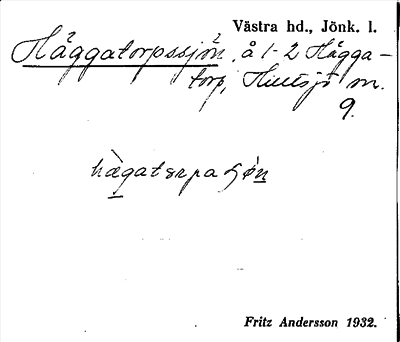 Västra hd., Jönk. l.
Häggatorpssjön, å 1-2 Hägga-
torp, Hultsjö sn.
9.
hägatorpaʃøn
Fritz Andersson 1932.